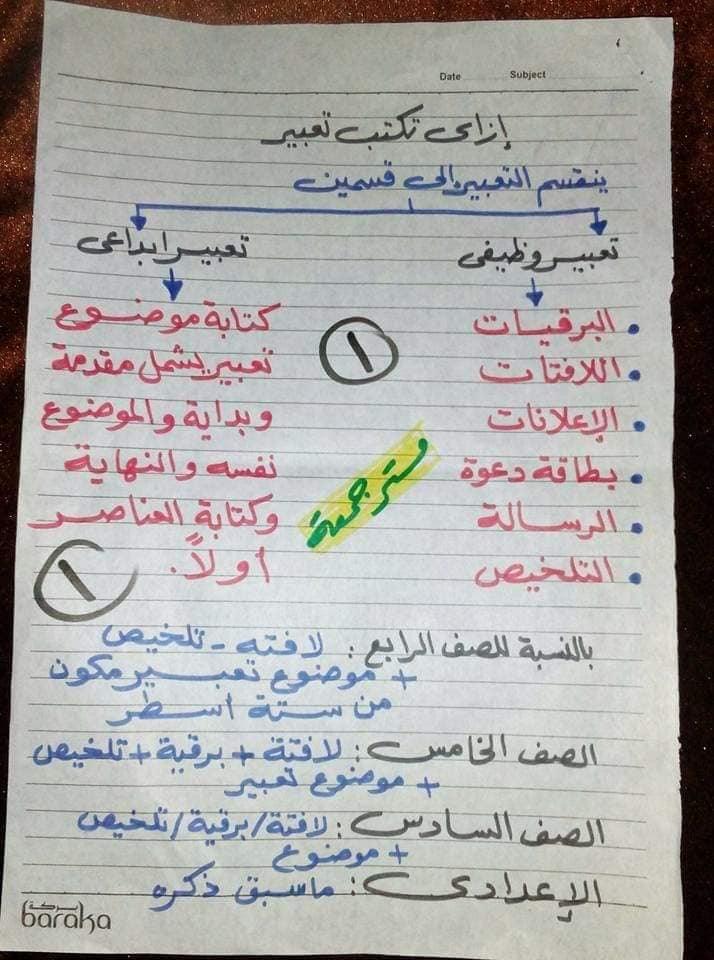 Date Subject
إزاى تكتب تعبير
ينقسم التعبير إلى قسمين
تعبير وظيفى
تعبير ابداعى
• البرقيات
• اللافتات
• الإعلانات
• بطاقة دعوة
• الرسالة
• التلخيص
١
كتابة موضوع
تعبير يشمل مقدمة
وبداية والموضوع
نفسه والنهاية
وكتابة العناصر
أولاً.
١
مستر جمعة
بالنسبة للصف الرابع: لافته - تلخيص
+ موضوع تعبير مكون
من ستة أسطر
الصف الخامس: لافتة + برقية + تلخيص
+ موضوع تعبير
الصف السادس: لافتة / برقية / تلخيص
+ موضوع
الإعدادى: ماسبق ذكره
بركة
baraka